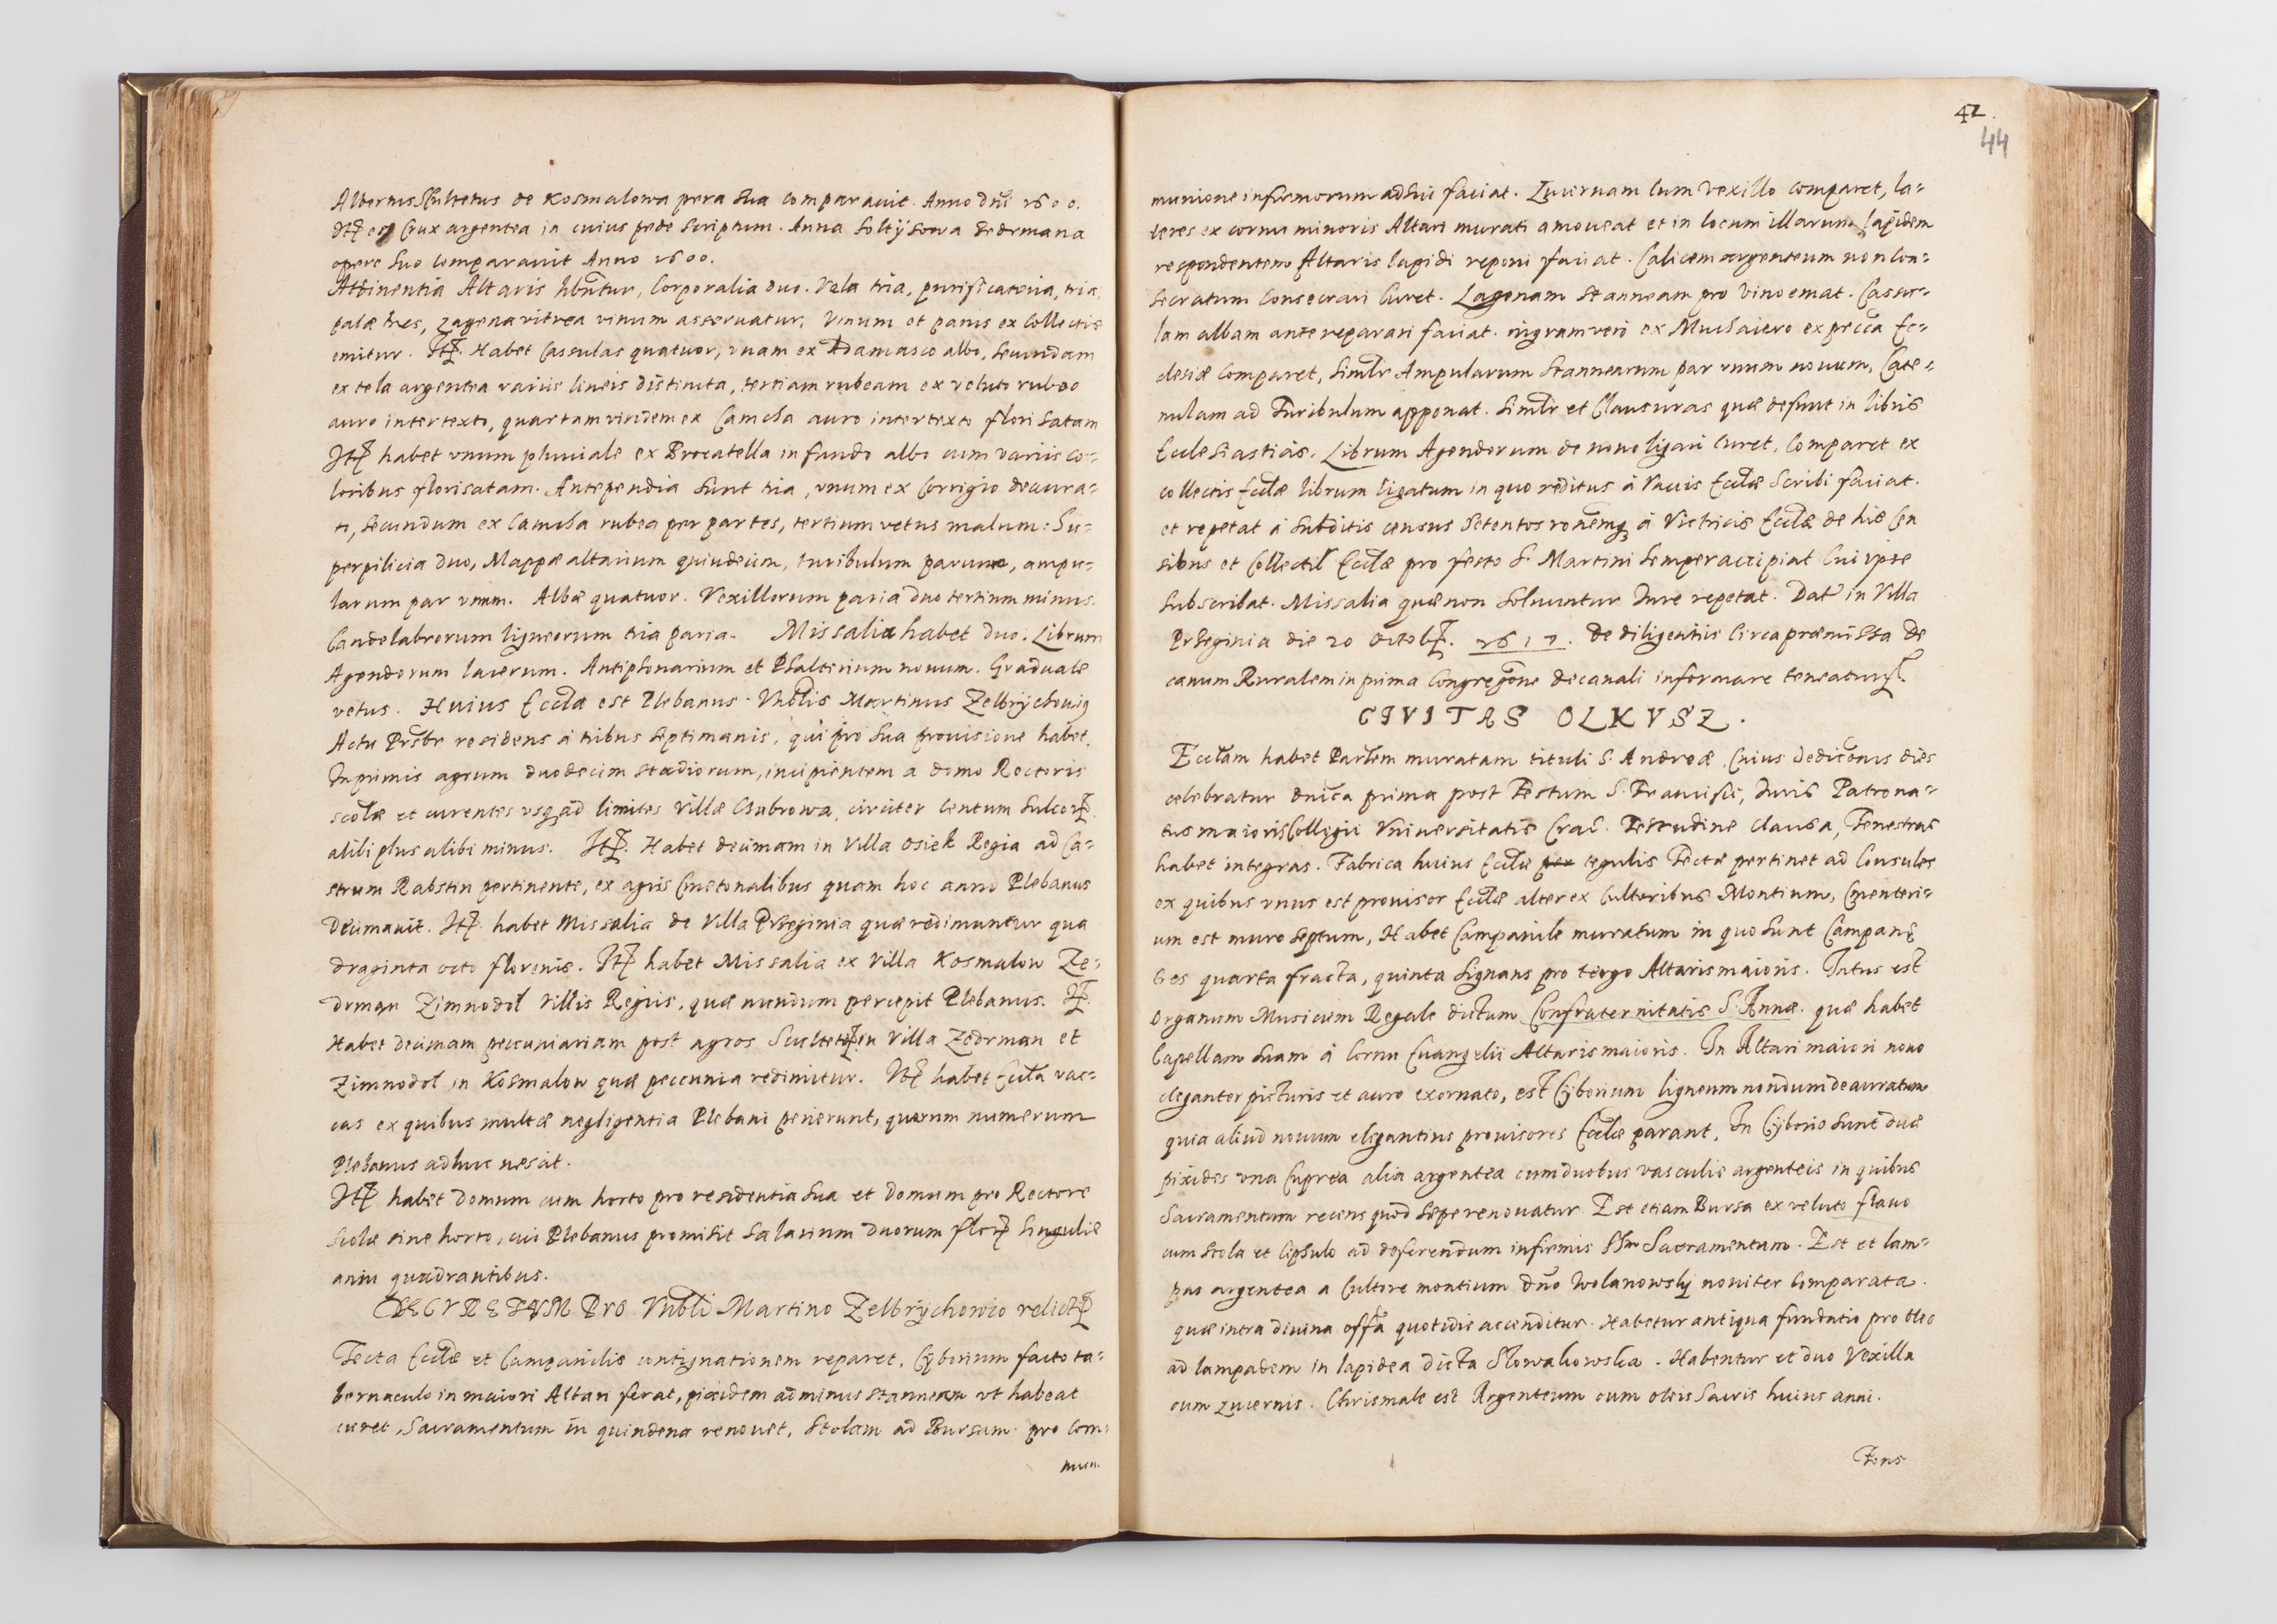 Albertus Scultetus de Kosmalowa pera sua comparauit. Anno dnĩ 1600.
Itẽ est Crux argentea in cuius pede scriptum. Anna Soltÿsowa Sedrmana
opere suo comparauit Anno 1600.
Attinentia Altaris hñtur, Corporalia duo. Vela tria, purificatoria, tria,
palæ tres, Lagena vitrea vinum asseruatur, Vinum et panis ex Collectis
emitur. Itẽ. Habet Cassulas quatuor, vnam ex Adamasco albo, secundam
ex tela argentea variis lineis distincta, tertiam rubeam ex veluto rubeo
auro intertexto, quartam viridem ex Camcha auro intertexto florisatam
Itẽ habet vnum pluuiale ex Brocatella in fundo albo cum variis co-
loribus florisatam. Antependia sunt tria, vnum ex Corrigio deaura-
to, secundum ex Camcha rubea per partes, tertium vetus malum: Su-
perpilicia duo, Mappæ altarium quindecim, turibulum paruum, ampu-
larum par vnum. Albæ quatuor. Vexillorum paria duo tertium minus.
Candelabrorum ligneorum tria paria. Missalia habet duo. Librum
Agendorum lacerum. Antiphonarium et Psalterium nouum. Graduale
vetus. Huius Ecclæ est Plebanus Vnblis Martinus Zelbrÿchouig
Actu Prsbr residens à tribus septimanis, qui pro sua prouisione habet.
Inprimis agrum duodecim stadiorum, incipientem a domo Rectoris
scolæ et currentes vsq ad limites villæ Chubrowa, circiter Centum sulcorũ.
alibi plus alibi minus. Itẽ. Habet decimam in villa Osiek Regia ad Ca-
strum Rabstin pertinente, ex agris Cmetonalibus quam hoc anno Plebanus
decimauit. Itẽ. habet Missalia de villa Przeginia quæ redimuntur qua
draginta octo florenis. Itẽ habet Missalia ex villa Kosmalow Ze-
drman Zimnodol villis Regiis, quæ nundum percepit Plebanus. Itẽ.
Habet decimam peccuniariam post agros Scultetorũ in villa Zedrman et
Zimnodol, in Kosmalow quæ peccunia redimitur. Itẽ habet Eccla vac-
cas ex quibus multæ negligentia Plebani perierunt, quarum numerum
Plebanus adhuc nescit.
Itẽ habet domum cum horto pro residentia sua et domum pro Rectore
scolæ sine horto, cui Plebanus promisit salarium duorum florẽ singulis
anni quadrantibus.
DECRETUM Pro Vnbli Martino Zelbrÿchowio relictũ
Tecta Ecclæ et Campanilis contignationem reparet, Cÿborium facto ta-
bernaculo in maiori Altari ferat, pixidem ad minus stanneam vt habeat
curet, Sacramentum in quindena renouet, Stolam ad Bursam pro Com-
mun.
42.
44
munione infirmorum adhuc faciat. Lucernam Cum vexillo comparet, la-
teres ex cornu minoris Altari murati amoueat et in locum illarum lapidem
respondentem Altaris lapidi reponi faciat. Calicem argenteum non con-
secratum Consecrari Curet. Lagenam stanneam pro vino emat. Cassu-
lam albam ante reparari faciat. nigram verò ex Muchaiero ex pecca Ec-
clesiæ Comparet, similr Ampularum stannearum par vnum nouum, Cate-
nulam ad Turibulum apponat. similr et Clausuras quæ desunt in libris
Ecclesiasticis. Librum Agendorum de nouo ligari Curet, Comparet ex
collectis Ecclæ librum ligatum in quo reditus à Vaccis Ecclæ Scribi faciat.
et repetat à subditis census retentos ronẽmq à Victricis Ecclæ de his Cen
sibus et Collectis Ecclæ pro festo S. Martini semper accipiat Cui ipse
subscribat. Missalia quæ non soluuntur Iure repetat. Dat in Villa
Przeginia die 20 Octobẽ. 1617. de diligentiis Circa præmissa De
canum Ruralem in prima Congregõne decanali informare teneatur.
CIVITAS OLKVSZ.
Ecclam habet Parlem muratam tituli S. Andreæ. Cuius dedicõnis dies
celebratur dnica prima post Festum S. Francisci, Iuris Patrona-
tus maioris Collegii Vniuersitatis Crac. Testudine clausa, Fenestras
habet integras. Fabrica huius Ecclæ per tegulis Tectæ pertinet ad Consules
ex quibus vnus est prouisor Ecclæ alter ex Cultoribus Montium, Cmenteri-
um est muro septum, Habet Campanile muratum in quo sunt Campanę
tres quarta fracta, quinta signans pro tergo Altaris maioris. Intus est
Organum Musicum Regale dictum Confraternitatis S. Annæ. quæ habet
Capellam suam à Cornu Euangelii Altaris maioris. In Altari maiori nouo
eleganter picturis et auro exornato, est Cÿborium ligneum nondum deauratum
quia aliud nouum elegantius prouisores Ecclæ parant. In Cÿborio sunt duæ
pixides vna Cuprea alia argentea cum duobus vasculis argenteis in quibus
Sacramentum recens quod sæpe renouatur Est etiam Bursa ex veluto flauo
cum Stola et Ciphulo ad deferendum infirmis SSm Sacramentum. Est et lam-
pas argentea a Cultore montium dño Wolanowskj nouiter Comparata.
quæ intra diuina offa quotidie accenditur. Habetur antiqua fundatio pro oleo
ad lampadem in lapidea dicta Slowakowska. Habentur et duo Vexilla
cum Lucernis. Chrismale est Argenteum cum oleis Sacris huius anni.
Fons